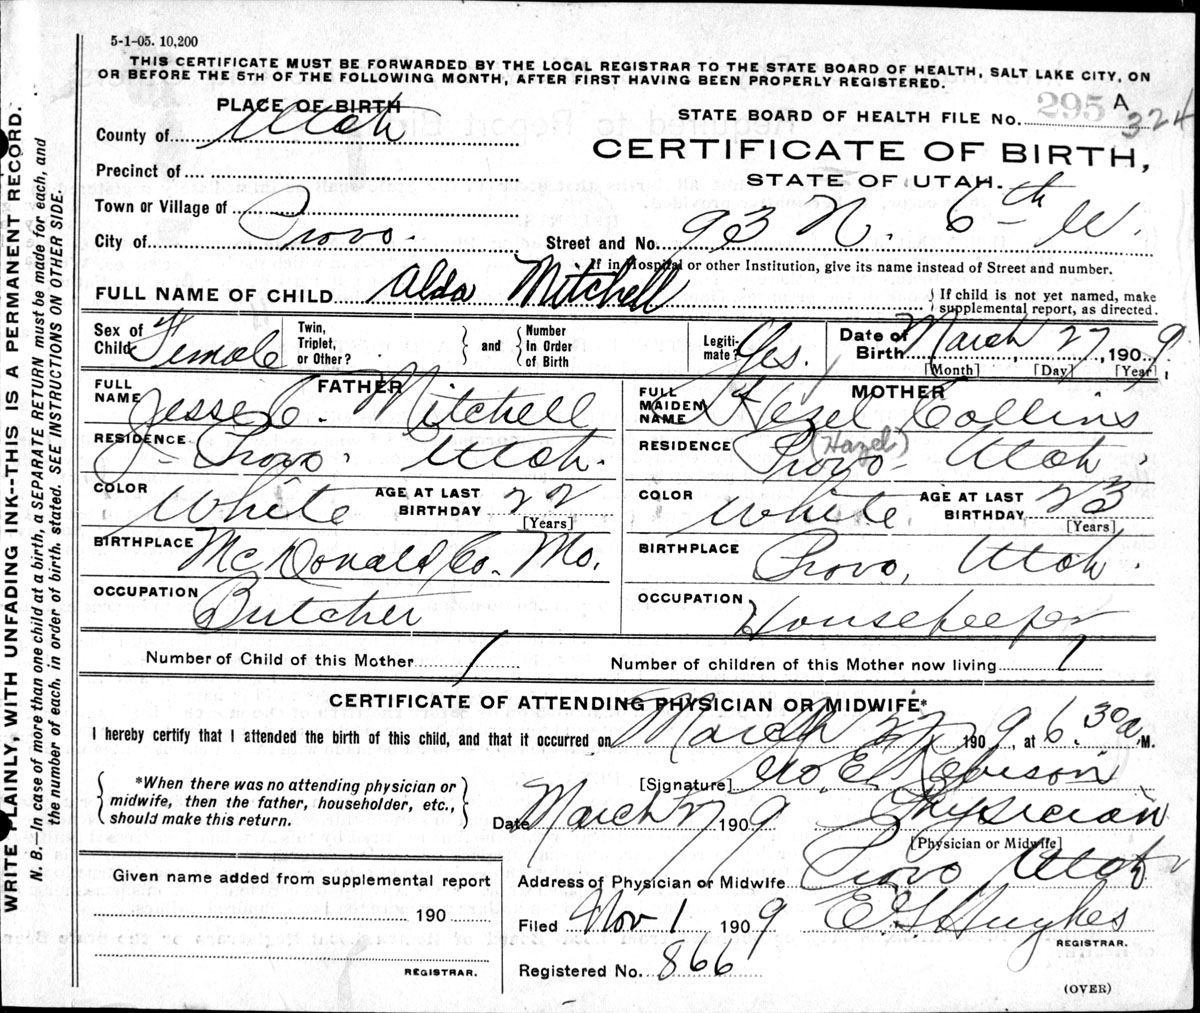 5-1-05. 10,200
THIS CERTIFICATE MUST BE FORWARDED BY THE LOCAL REGISTRAR TO THE STATE BOARD OF HEALTH, SALT LAKE CITY, ON
OR BEFORE THE 5TH OF THE FOLLOWING MONTH, AFTER FIRST HAVING BEEN PROPERLY REGISTERED.
PLACE OF BIRTH
County of Utah
STATE BOARD OF HEALTH FILE No. 295 A 324
CERTIFICATE OF BIRTH,
STATE OF UTAH.
Precinct of
Town or Village of
City of Provo. Street and No. 93 N. 6th W.
If in Hospital or other Institution, give its name instead of Street and number.
FULL NAME OF CHILD Alda Mitchell { If child is not yet named, make
supplemental report, as directed.
Sex of Child Female Twin, Triplet, or Other? } and { Number In Order of Birth Legiti-mate? Yes. Date of Birth March 27, 1909,
[Month] [Day] [Year]
FATHER
FULL NAME Jesse C. Mitchell
RESIDENCE Provo. Utah.
COLOR White AGE AT LAST BIRTHDAY 22 [Years]
BIRTHPLACE McDonald Co. Mo.
OCCUPATION Butcher
MOTHER
FULL MAIDEN NAME Hezel Collins
(Hazel)
RESIDENCE Provo - Utah.
COLOR White AGE AT LAST BIRTHDAY 23 [Years]
BIRTHPLACE Provo, Utah.
OCCUPATION Housekeeper
Number of Child of this Mother 1 Number of children of this Mother now living 1
CERTIFICATE OF ATTENDING PHYSICIAN OR MIDWIFE*
I hereby certify that I attended the birth of this child, and that it occurred on March 27, 1909, at 6.30 a. M.
{ *When there was no attending physician or
midwife, then the father, householder, etc.,
should make this return. }
[Signature] Geo. E. Robison
Date March 27 1909 Physician
[Physician or Midwife]
Address of Physician or Midwife Provo Utah
Filed Nov 1 1909 E G Hughes
REGISTRAR.
Registered No. 866
Given name added from supplemental report
190
REGISTRAR.
(OVER)
WRITE PLAINLY, WITH UNFADING INK--THIS IS A PERMANENT RECORD.
N. B.—In case of more than one child at a birth, a SEPARATE RETURN must be made for each, and
the number of each, in order of birth, stated. SEE INSTRUCTIONS ON OTHER SIDE.